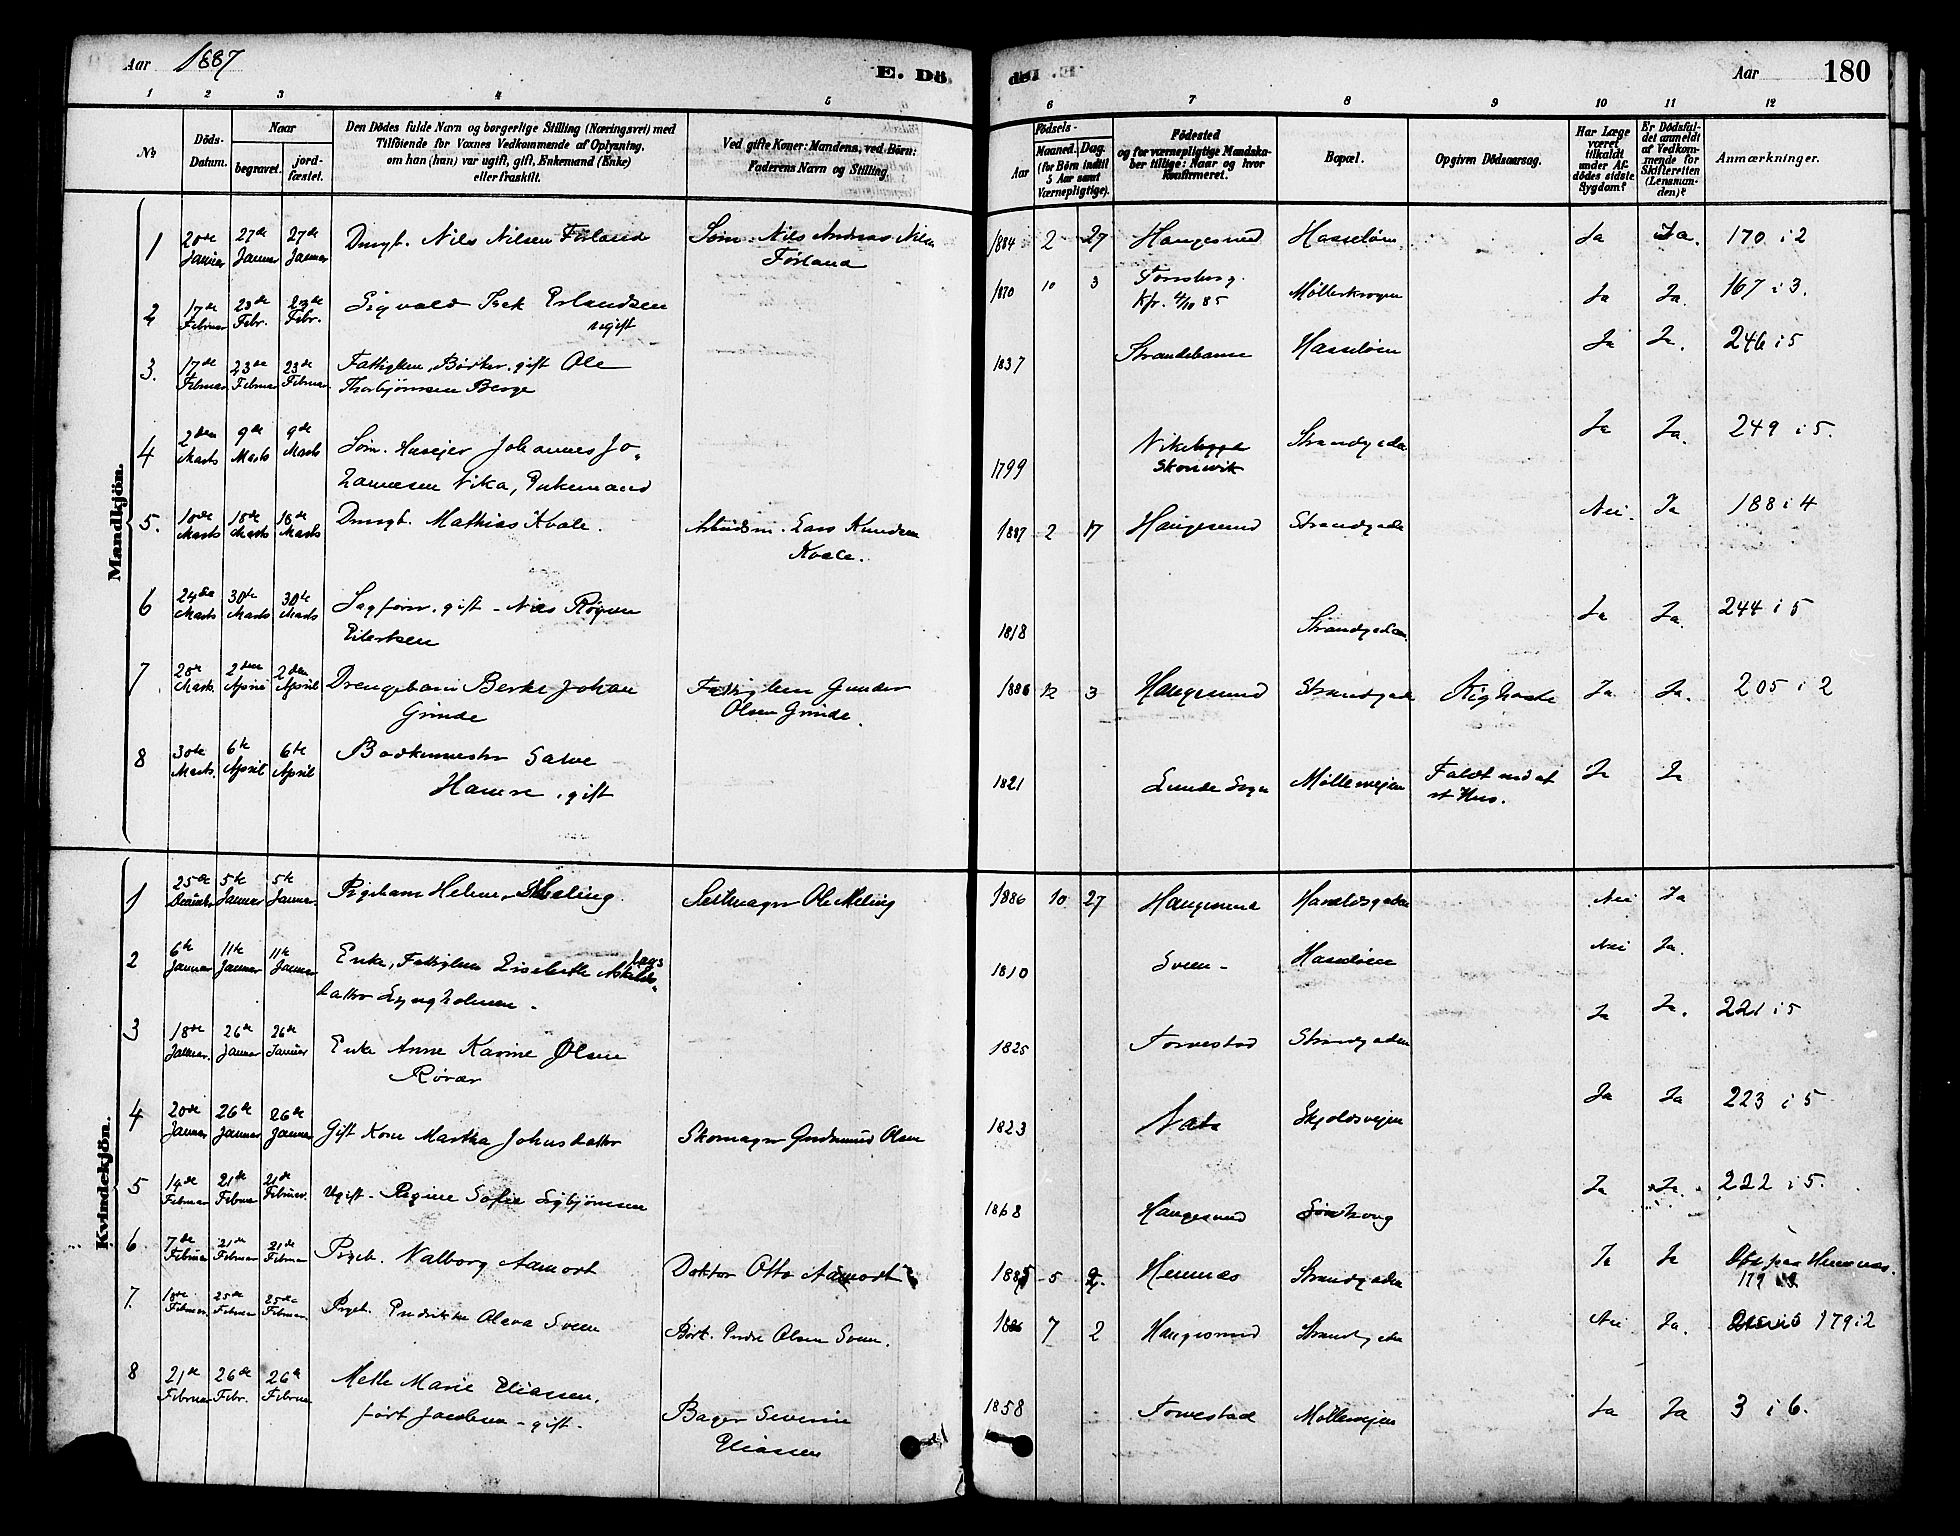 Aar 1887
E. Dö-
de.
Aar
180
1 2 3 4 5 6 7 8 9 10 11 12
No
Döds-Datum.
Naar
begravet.
jord-fæstet.
Den Dödes fulde Navn og borgerlige Stilling (Næringsvei) med
Tilföiende for Voxnes Vedkommende af Oplysning,
om han (hun) var ugift, gift, Enkemand (Enke)
eller fraskilt.
Ved gifte Koner: Mandens, ved Börn:
Faderens Navn og Stilling.
Födsels-
Aar
Maaned. Dag.
(for Börn indtil
5 Aar samt
Værnepligtige).
Födested
og for værnepligtige Mandska-
ber tillige: Naar og hvor
konfirmeret.
Bopæl.
Opgiven Dödsaarsag.
Har Læge
været
tilkaldt
under Af-
dödes sidste
Sygdom?
Er Dödsfal-
det anmeldt
af Vedkom-
mende for
Skifteretten
(Lensman-
den)?
Anmærkninger.
Mandkjön.
1 20de Januar 27de Januar 27de Januar Drngb. Nils Nilsen Førland Søm. Nils Andreas Nilsen Førland 1884 2 27 Haugesund Hasseløen Ja Ja. 170 i 2
2 17de Februar 23de Febr. 23de Febr. Sigvald Erlandsen ugift 1870 10 3 Kfr. 4/10 85 Møllerkrogen Ja Ja. 167 i 3.
3. 17de Februar 23de Februar 23de Februar Fattiglem, gift Ole Thorbjørnsen Berge 1837 Strandebarm Hasseløen Ja Ja. 246 i 5
4 2den Marts 9de Marts 9de Marts Søm. Huseier Johannes Jo-
hannesen Vika, Enkemand 1799 Skonevik Strandgaden Ja Ja. 249 i 5.
5. 10de Marts 18de Marts 18de Marts Drngb. Mathias Kvale. Arbeidsm. Lars Knudsen Kvale. 1887 2 17 Haugesund Strandgaden Nei. Ja 188 i 4
6 24de Marts 30te Marts 30te Marts Sagfører, gift - Nils Eilertsen 1818 Strandgaden. Ja Ja. 244 i 5
7. Marts. 2den April 2den April Drengebarn Johan Grinde Fattiglem Gunder Olsen Grinde. 1886 12 3 Haugesund Strandgaden Kighoste Ja Ja. 205 i 2
8 30te Marts. 6te April 6te April Salve Hamre, gift 1821 Lunde Sogn Mølleveien Faldt ned af et Hus. Ja Ja
Kvindekjön.
1 25de December 5te Januar 5te Januar Pigebarn Helene Meling. Seilmager Ole Meling 1886 10 27 Haugesund Haraldsgaden Nei Ja
2 6te Januar 11te Januar 11te Januar Enke, Fattiglem Lisebeth Lars
datter Lyngholmen. 1810 Sveen - Hasseløen Nei Ja.
3 18de Januar. 26de Januar 26de Januar Enke Anne Karine Olsen
Røvær 1825 Torvestad Strandgaden Ja Ja. 221 i 5
4 20de Januar 26de Januar 26de Januar Gift Kone Martha Johnsdatter Skomager Gudmund Olsen 1823 Skjoldsveien Ja Ja 223 i 5
5 14de Februar 21de Februar 21de Februar. Ugift - Regine Sofie Sigbjørnsen 1868 Haugesund Sørhaug Ja Ja. 222 i 5.
6 7de Februar 21de Februar 21de Februar Pigeb. Valborg Aamodt Doktor Otto Aamodt 5 Hemnæs Strandgaden Ja Ja Hemnæs. 179
7. 18de Februar. 25de Februar 25de Februar. Pigeb. Endrikke Oleva Sveen Endre Olsen Sveen. 1886 7 2 Haugesund Strandgaden Nei Ja. 179 i 2
8 21de Februar 26de Febr. 26de Februar Mette Marie Eliassen,
født Jacobsen - gift. Bager Severin
Eliassen 1858 Torvestad Mølleveien Ja Ja 3 i 6.